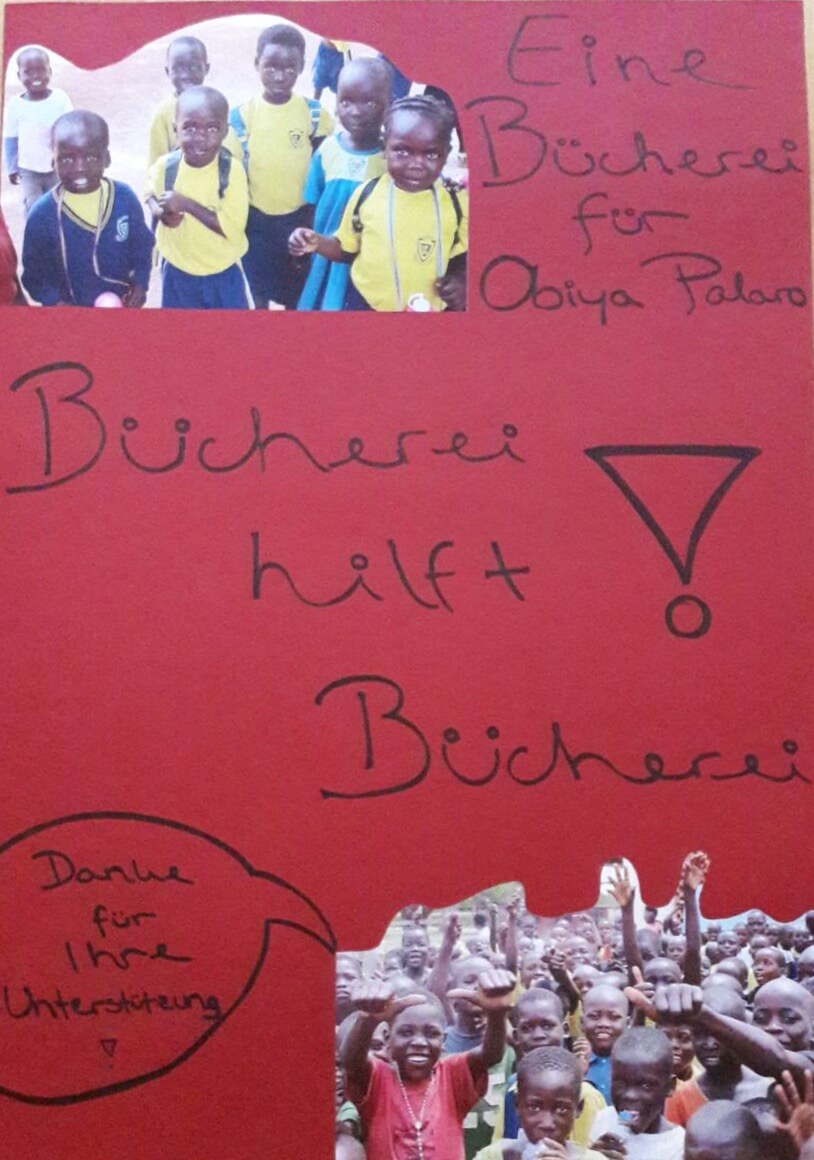 Eine
Bücherei
für
Obiya Palaro
Bücherei
hilft !
Bücherei
Danke
für
Ihre
Unterstützung
!